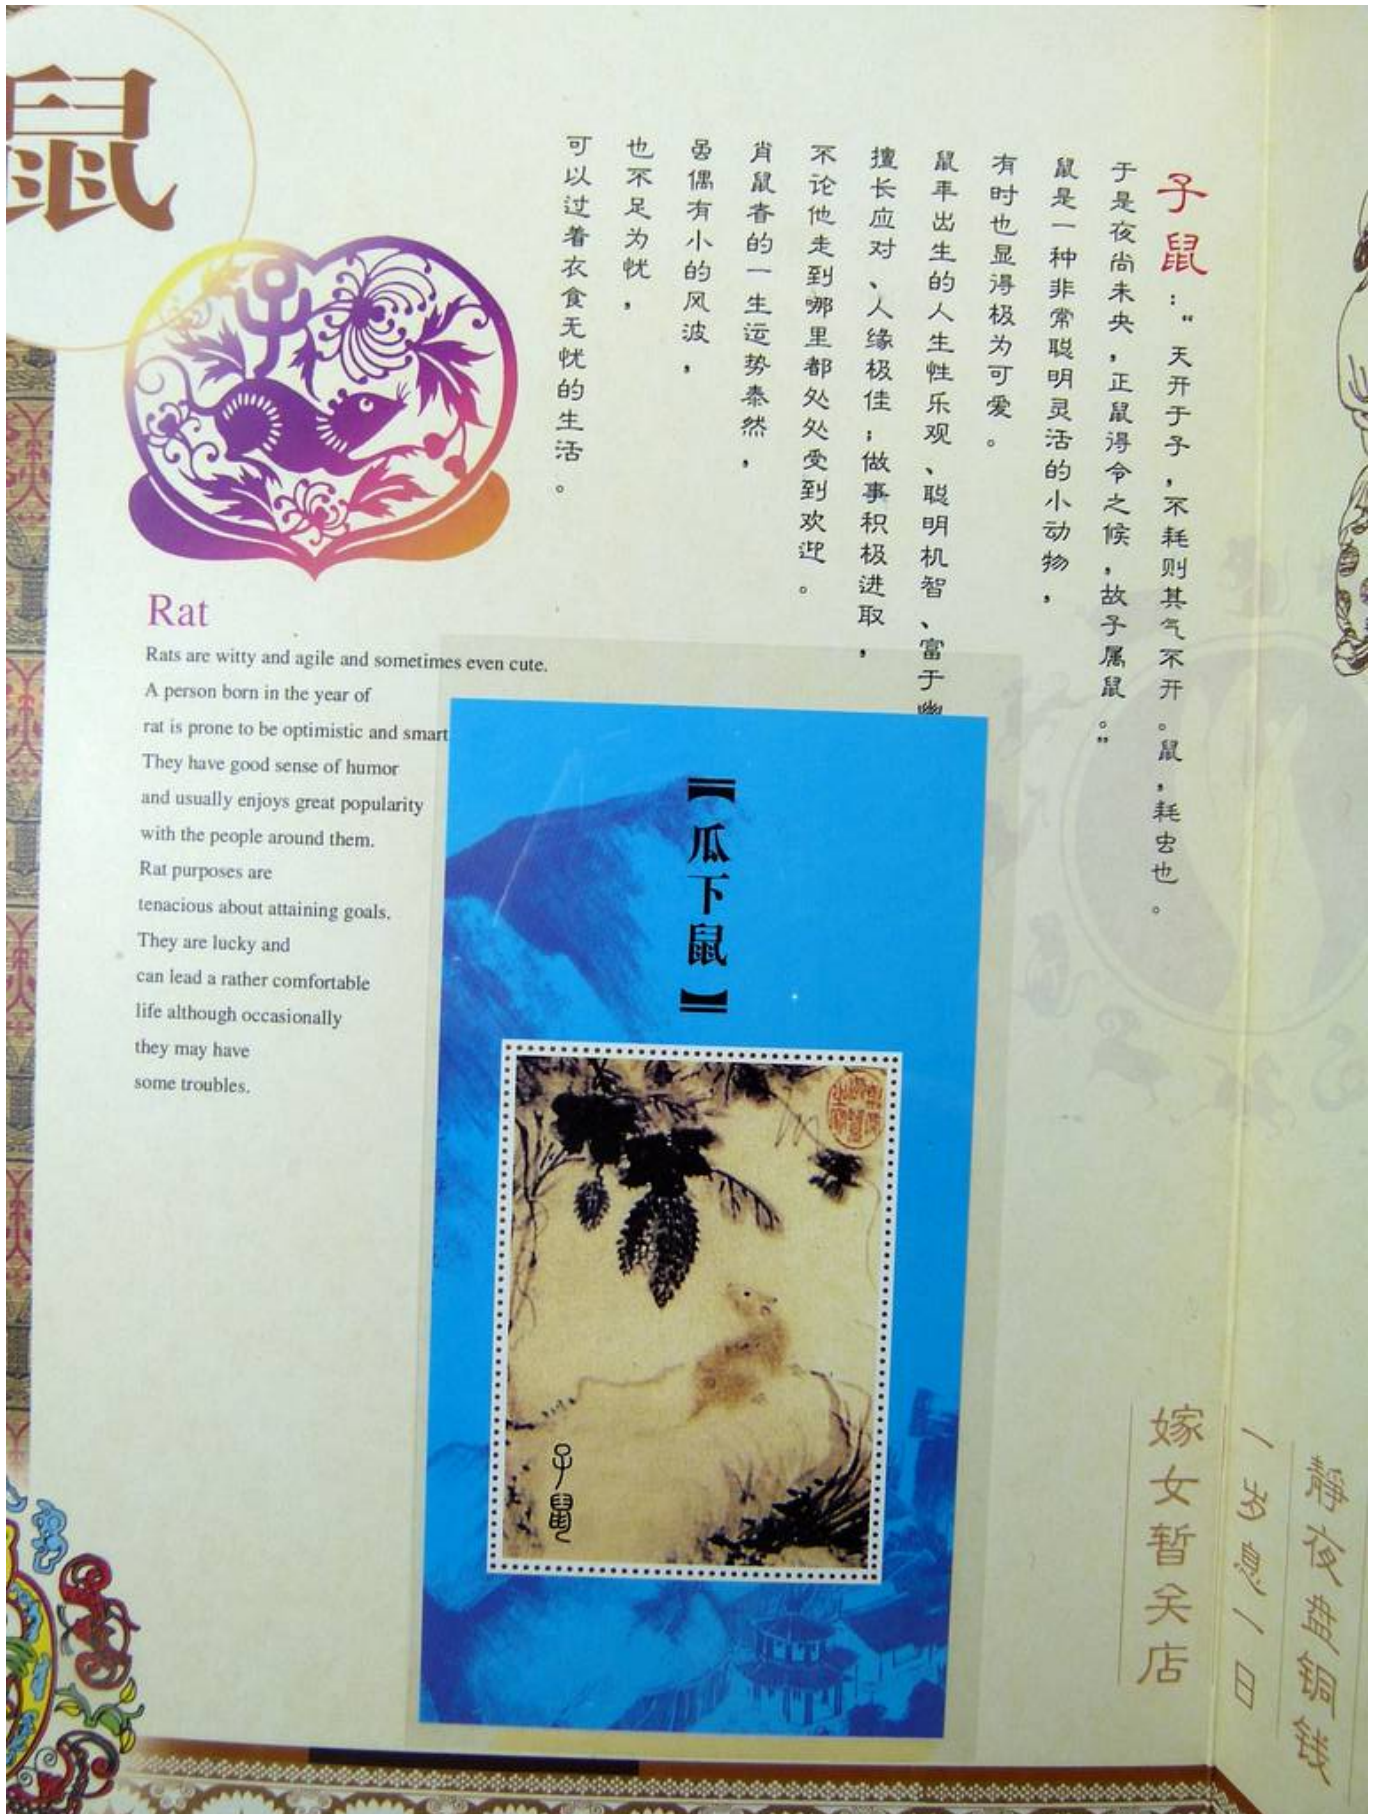 鼠
子鼠：“天开于子，不耗则其气不开。鼠，耗虫也。
于是夜尚未央，正鼠得令之候，故子属鼠。”
鼠是一种非常聪明灵活的小动物，
有时也显得极为可爱。
鼠年出生的人生性乐观、聪明机智、富于幽
擅长应对、人缘极佳；做事积极进取，
不论他走到哪里都处处受到欢迎。
肖鼠者的一生运势泰然，
虽偶有小的风波，
也不足为忧，
可以过着衣食无忧的生活。
Rat
Rats are witty and agile and sometimes even cute.
A person born in the year of
rat is prone to be optimistic and smart
They have good sense of humor
and usually enjoys great popularity
with the people around them.
Rat purposes are
tenacious about attaining goals.
They are lucky and
can lead a rather comfortable
life although occasionally
they may have
some troubles.
【瓜下鼠】
子鼠
靜夜盘铜钱
一岁息一日
嫁女暂关店